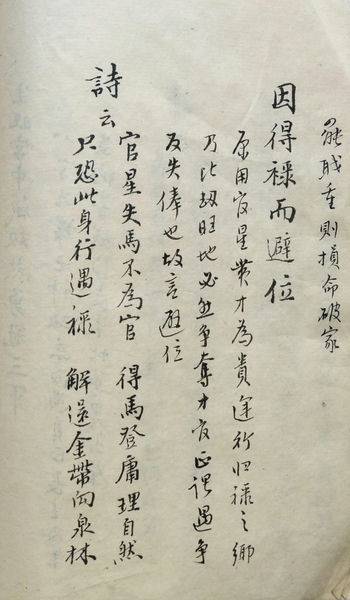 罷職重則損命破家
因得祿而避位
原用官星帶才為貴逢行归祿之鄉
乃比劫旺地必然争奪才官正謂遇争
反失俸也故言避位
詩云
官星失馬不為官 得馬登庸理自然
只恐此身行遇祿 解還金帶向泉林